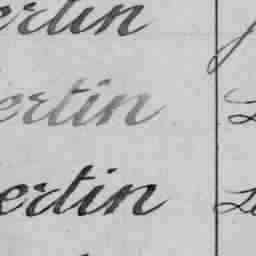 ertin
ertin
ertin